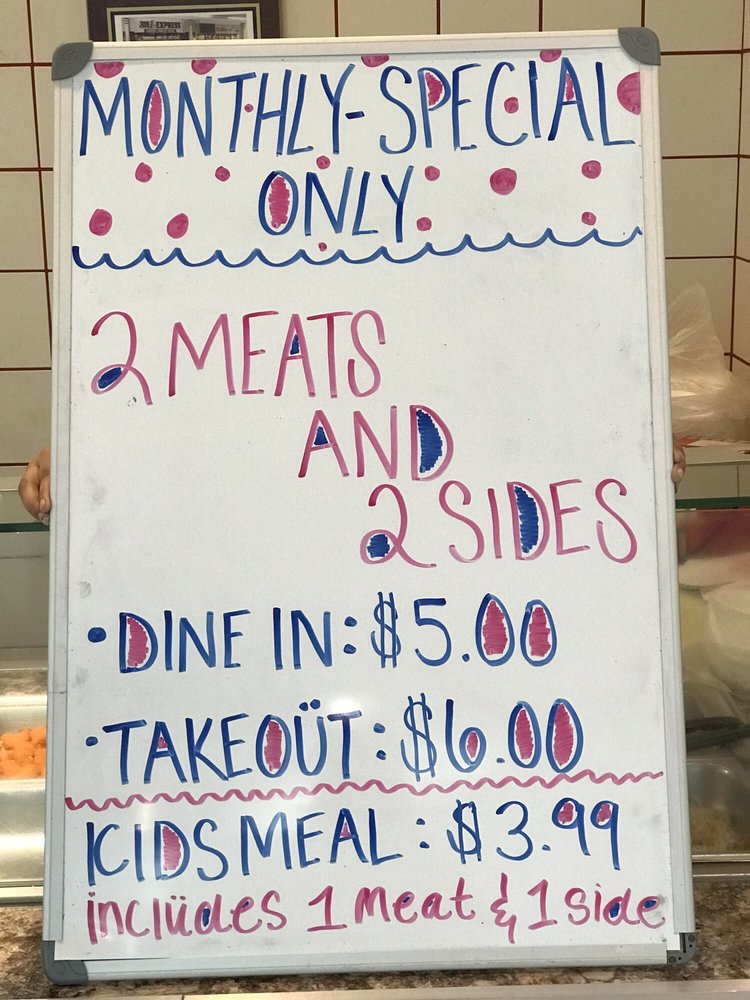 MONTHLY-SPECIAL
ONLY
2 MEATS
AND
2 SIDES
• DINE IN: $5.00
• TAKEOÜT: $6.00
KIDS MEAL: $3.99
inclüdes 1 meat & 1 side